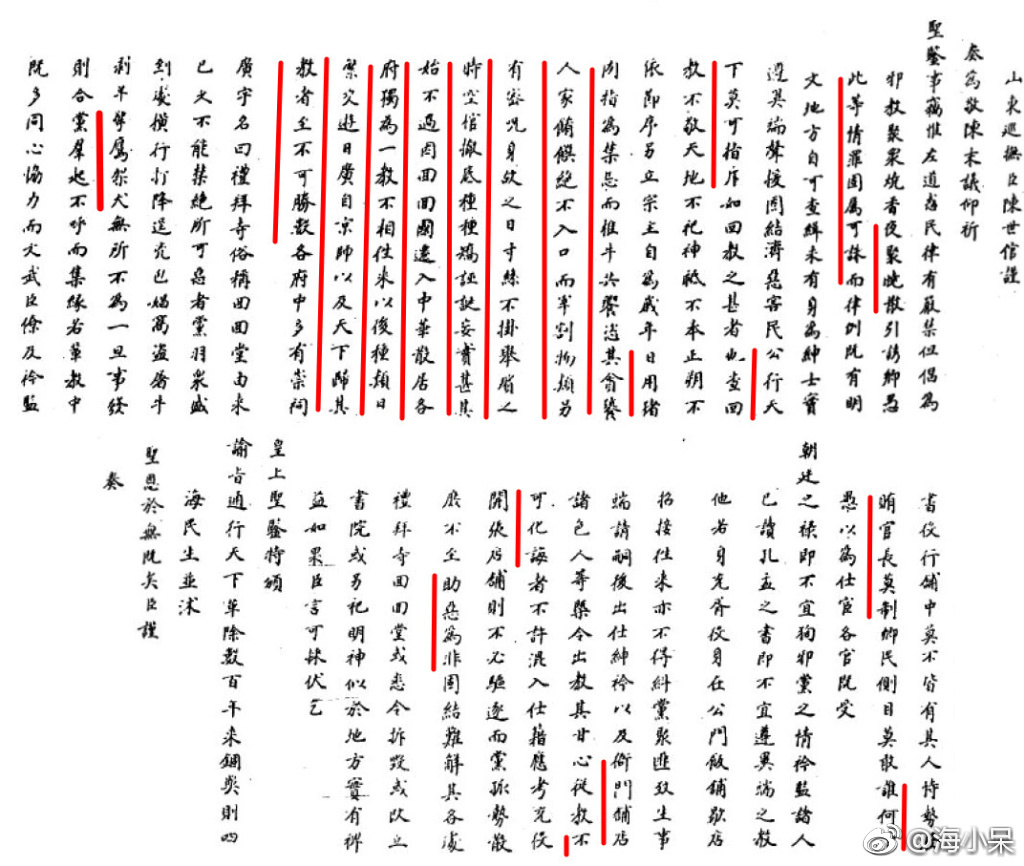 山東巡撫臣陳世倌謹
奏為敬陳末議仰祈
聖鑒事竊惟左道惑民律有嚴禁但偶為
邪教聚衆燒香夜聚曉散引誘鄉愚
此等情罪固屬可誅而律例既有明
文地方自可查緝未有身為紳士實
遵異端聲援團結濟惡害民公行天
下莫可指斥如回教之甚者也查回
教不敬天地不祀神祇不本正朔不
依節序另立宗主自為歲年日用猪
肉指為集忌而椎牛共饗恣其會饕
人家餚饌絕不入口而羊割物類另
有密咒身故之日寸絲不掛舉殯之
時空棺撤底種種矯誣誕妄實甚其
始不過因回回國遷入中華散居各
府獨為一教不相往來以後種類日
繁交遊日廣自京師以及天下歸其
教者至不可勝數各府中多有崇祠
廣宇名曰禮拜寺俗稱回回堂由來
已久不能禁絕所可惡者黨羽衆盛
到處橫行打降逞兇包娼窩盜屠牛
剥羊擎鷹架犬無所不為一旦事發
則合黨羣起不呼而集緣若輩教中
既多同心協力而文武臣僚及衿監
書役行舖中莫不皆有其人恃勢
賄官長莫制鄉民側目莫敢誰何
愚以為仕宦各官既受
朝廷之祿即不宜狥邪黨之情衿監諸人
已讀孔孟之書即不宜遵異端之教
他若身充胥役身在公門飯舖歇店
招接往來亦不得糾黨聚匪致生事
端請嗣後出仕紳衿以及衙門舖店
諸色人等槩令出教其甘心從教不
可化誨者不許混入仕籍應考充役
開張店舖則不必驅逐而黨孤勢散
庶不至助惡為非固結難解其各處
禮拜寺回回堂或悉令拆毀或改立
書院或另祀明神似於地方實有裨
益如果臣言可採伏乞
皇上聖鑒特頒
諭旨通行天下革除數百年來錮與則四
海民生並沭
聖恩於無既矣臣謹
奏
@海小呆